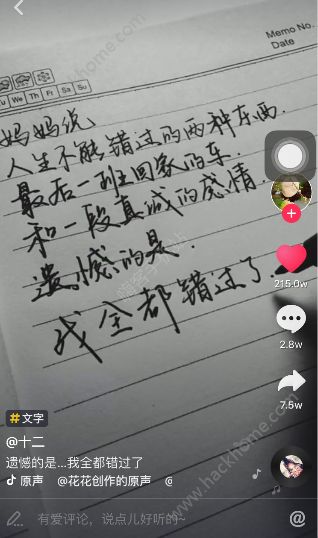 Memo No.
Date
Tu We Th Fr Sa Su
妈妈说
人生不能错过的两种东西.
最后一班回家的车.
和一段真诚的感情.
遗憾的是.
我全都错过了.
215.0w
2.8w
7.5w
#文字
@十二
遗憾的是...我全都错过了
原声 @花花创作的原声
有爱评论，说点儿好听的~
@
www.hackhome.com